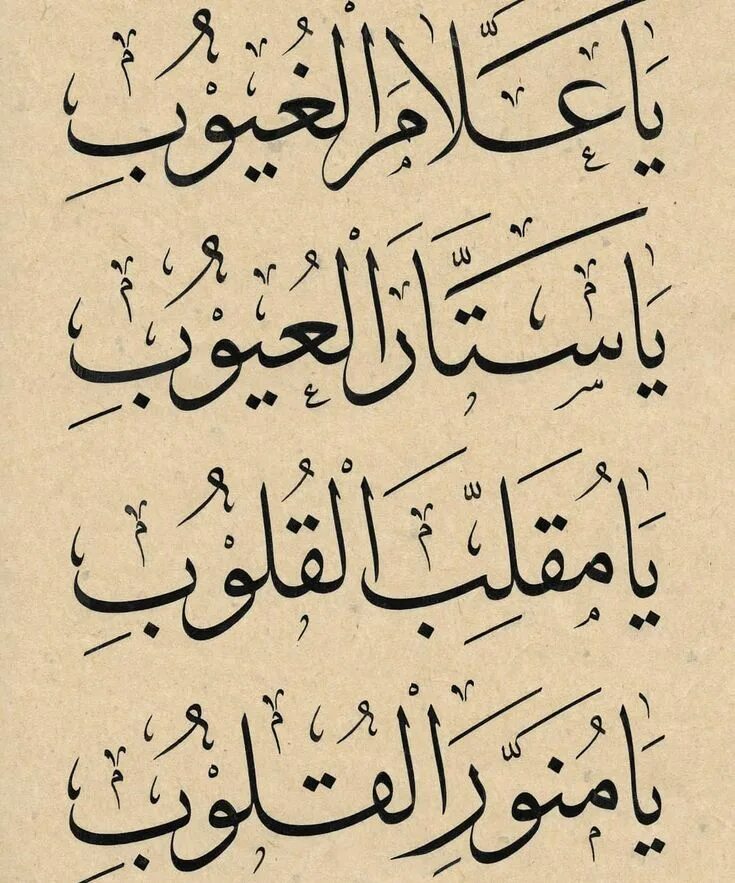 يَا عَلَّامَ الْغُيُوْبِ
يَا سَتَّارَ الْعُيُوْبِ
يَا مُقَلِّبَ الْقُلُوْبِ
يَا مُنَوِّرَ الْقُلُوْبِ